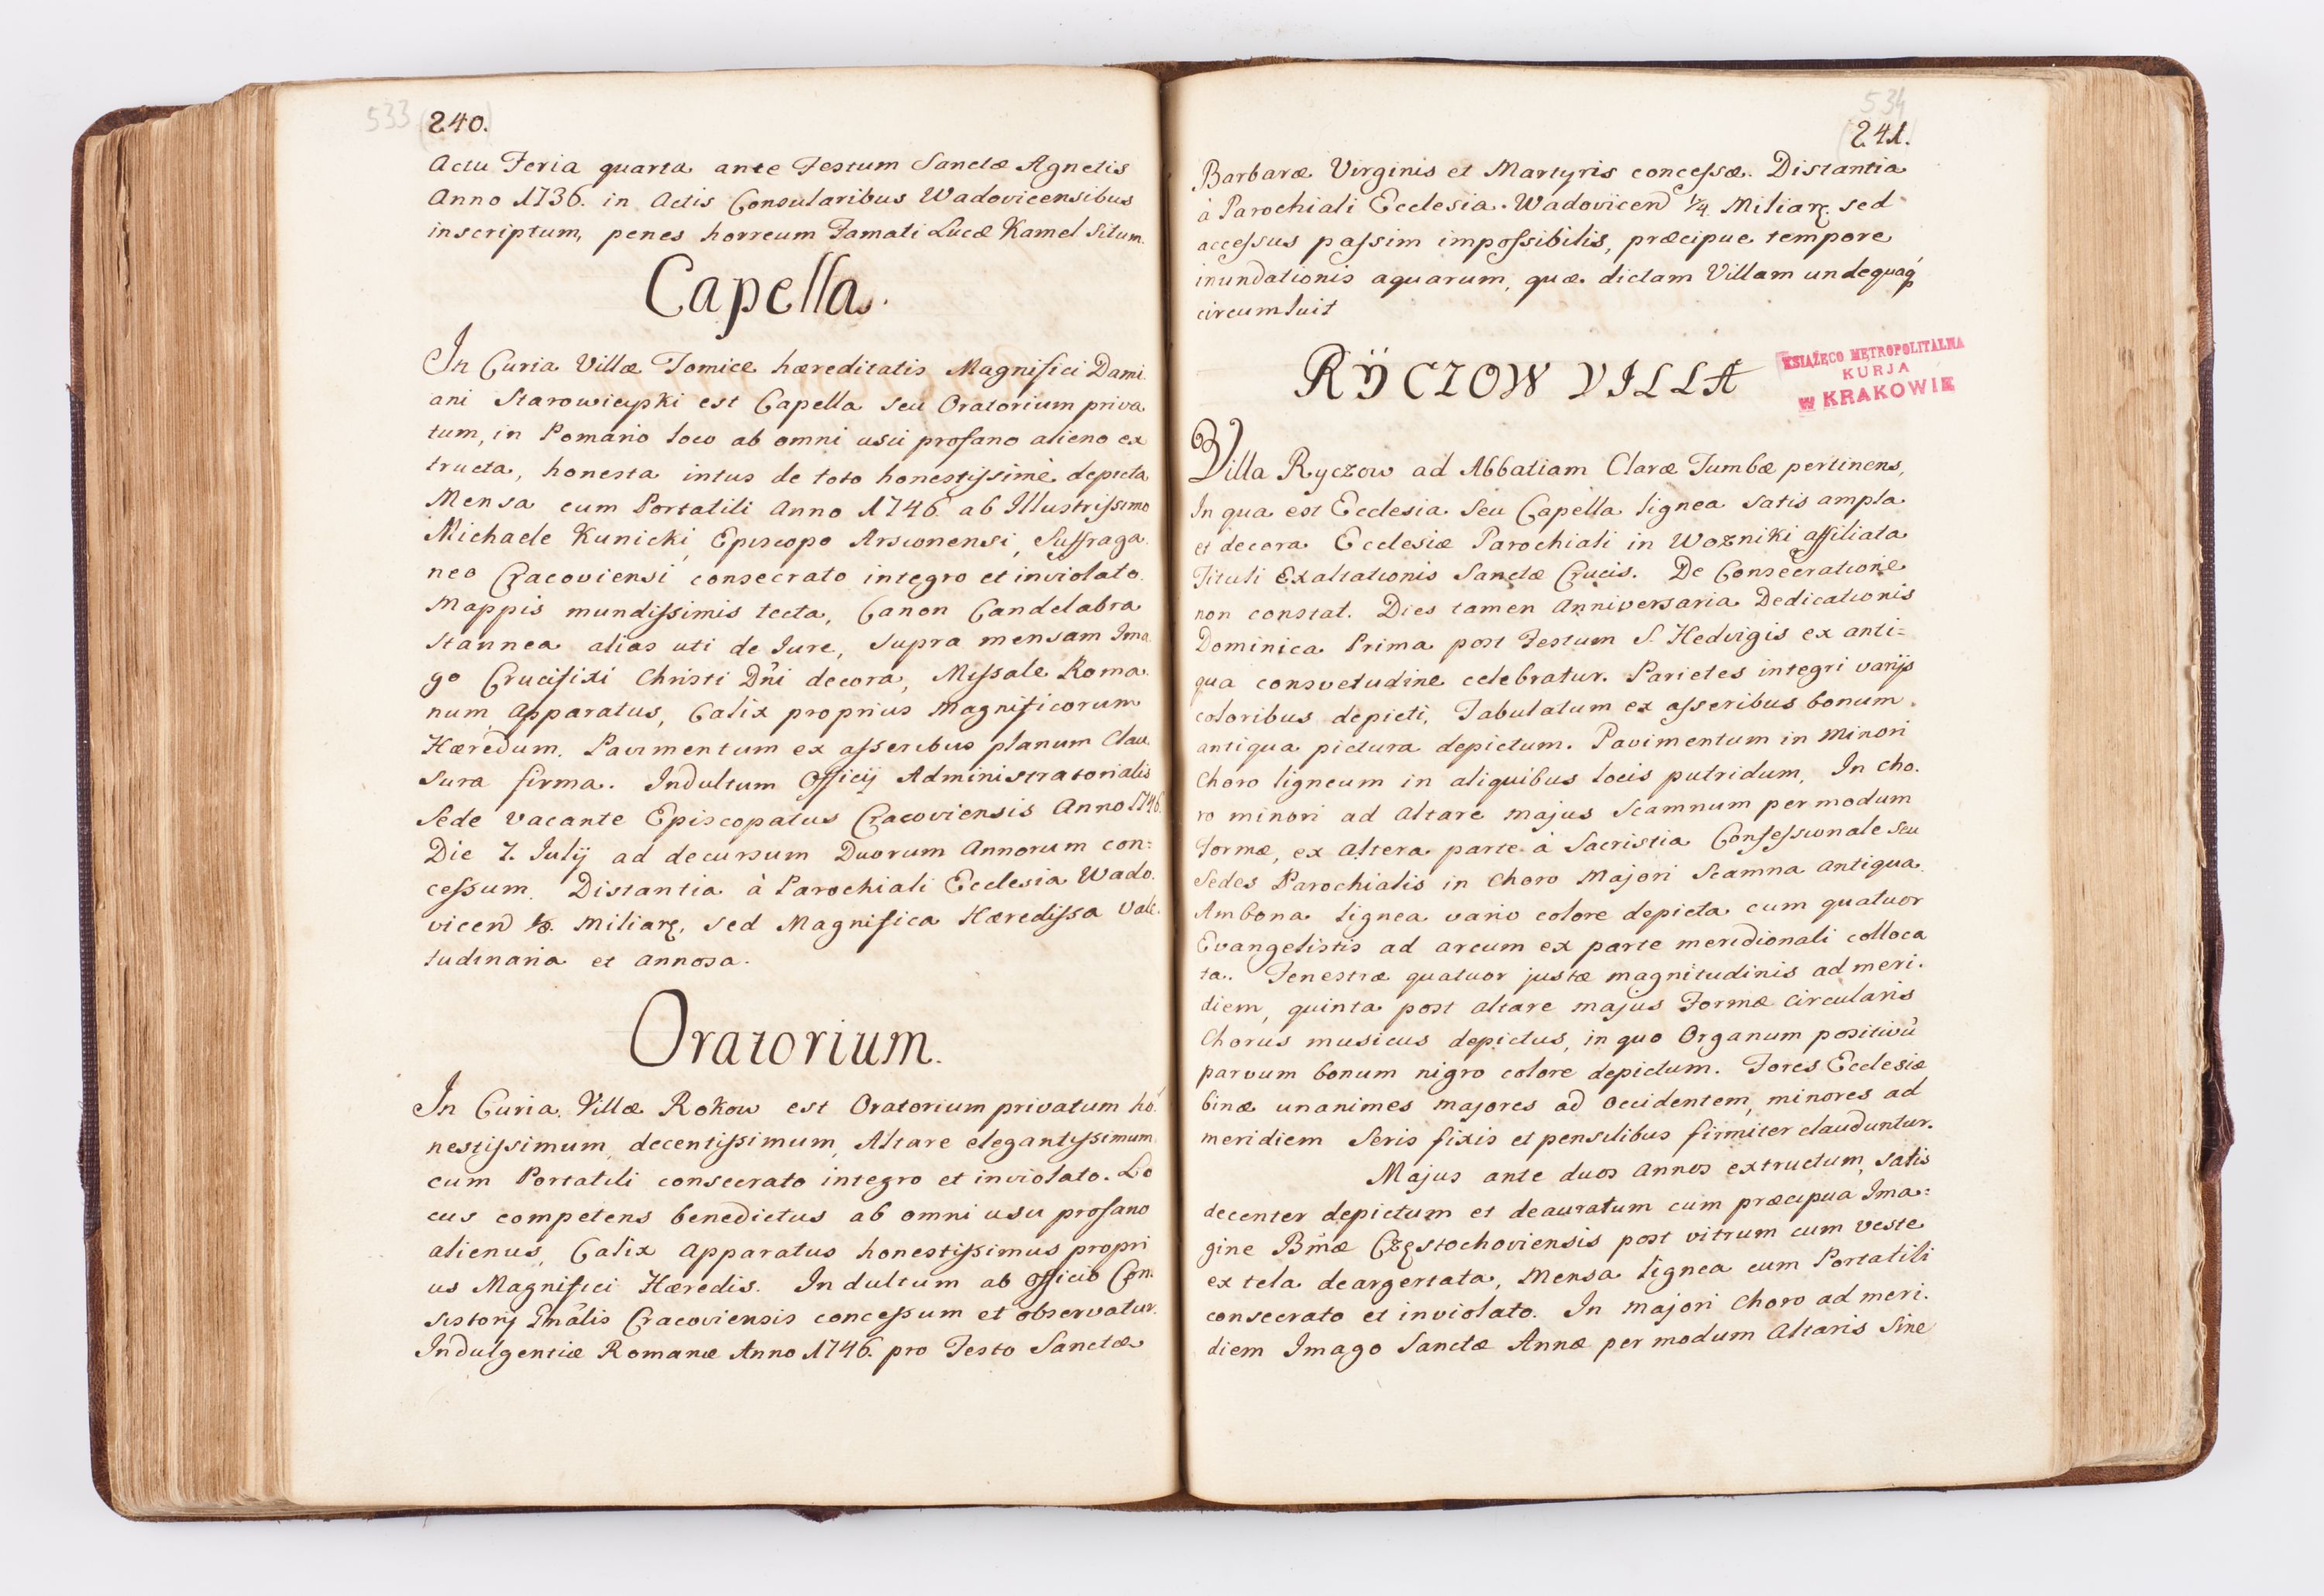 533 240.
Actu Feria quarta ante Festum Sanctæ Agnetis
Anno 1736. in Actis Consularibus Wadovicensibus
inscriptum, penes horreum Famati Lucæ Kamel situm.
Capella.
In Curia Villæ Tomice hæreditatis Magnifici Dami
ani Starowieyski est Capella seu Oratorium priva
tum, in Pomario loco ab omni usu profano alieno ex
tructa, honesta intus de toto honestissimè depicta
Mensa cum Portatili Anno 1746 ab Illustrissimo
Michaele Kunicki, Episcopo Arsconensi, Suffraga
neo Cracoviensi consecrato integro et inviolato.
Mappis mundissimis tecta, Canon Candelabra
stannea alias uti de Iure, supra mensam Ima
go Crucifixi Christi Dńi decora, Missale Roma
num Apparatus, Calix proprius Magnificorum
Hæredum. Pavimentum ex asseribus planum Clau
sura firma. Indultum Officij Administratorialis
Sede vacante Episcopatus Cracoviensis Anno 1746.
Die 7. Iulij ad decursum Duorum Annorum con:
cessum. Distantia à Parochiali Ecclesia Wado.
vicen Miliar, sed Magnifica Hæredissa vale.
tudinaria et annosa.
Oratorium.
In Curia Villæ Rokow est Oratorium privatum ho.
nestissimum, decentissimum, Altare elegantissimum
cum Portatili consecrato integro et inviolato. Lo
cus competens benedictus ab omni usu profano
alienus, Calix Apparatus honestissimus propri
us Magnifici Hæredis. Indultum ab Officio Con.
sistorij Gńalis Cracoviensis concessum et observatur.
Indulgentiæ Romanæ Anno 1746. pro Festo Sanctæ
534
241.
Barbaræ Virginis et Martyris concessæ. Distantia
à Parochiali Ecclesia Wadovicen ¼ Miliar. sed
accessus passim impossibilis, præcipue tempore
inundationis aquarum, quæ dictam Villam undequaq́
circumluit
RŸCZOW VILLA
KSIĄŻĘCO METROPOLITALNA
KURJA
w KRAKOWIE
Villa Ryczow ad Abbatiam Claræ Tumbæ pertinens,
In qua est Ecclesia seu Capella lignea satis ampla
et decora Ecclesiæ Parochiali in Wozniki affiliata
Tituli Exaltationis Sanctæ Crucis. De Consecratione
non constat. Dies tamen Anniversaria Dedicationis
Dominica Prima post Festum S. Hedvigis ex anti=
qua consvetudine celebratur. Parietes integri varijs
coloribus depicti, Tabulatum ex asseribus bonum
antiqua pictura depictum. Pavimentum in minori
Choro ligneum in aliquibus locis putridum, In cho.
ro minori ad Altare majus Scamnum per modum
formæ, ex Altera parte à Sacristia Confessionale seu
Sedes Parochialis in Choro Majori Scamna antiqua
Ambona lignea vario colore depicta cum quatuor
Evangelistis ad arcum ex parte meridionali colloca
ta. Fenestræ quatuor justæ magnitudinis ad meri.
diem, quinta post altare majus Formæ Circularis
Chorus musicus depictus, in quo Organum positivū
parvum bonum nigro colore depictum. Fores Ecclesiæ
binæ unanimes majores ad Occidentem, minores ad
meridiem Seris fixis et pensilibus firmiter clauduntur.
Majus ante duos Annos extructum, satis
decenter depictum et deauratum cum præcipua Ima=
gine Bm̃æ Częstochoviensis post vitrum cum veste
ex tela deargentata, Mensa lignea cum Portatili
consecrato et inviolato. In majori Choro ad meri.
diem Imago Sanctæ Annæ per modum Altaris Sine